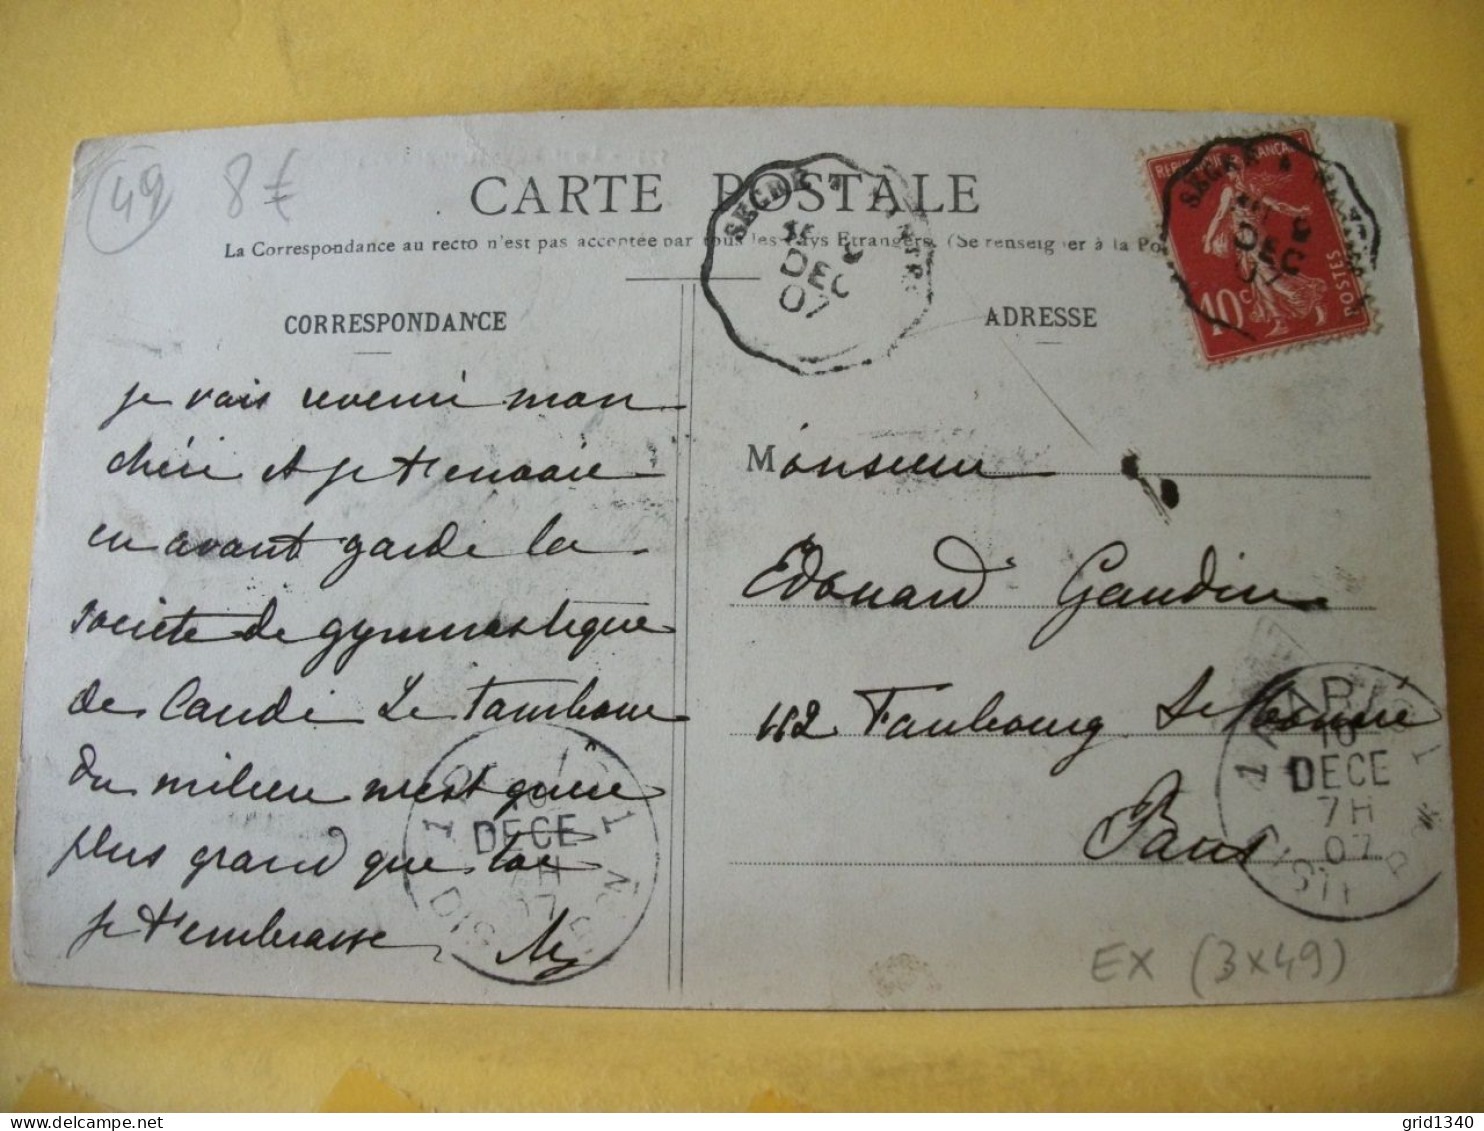 49 8€
CARTE POSTALE
La Correspondance au recto n'est pas acceptée par tous les Pays Etrangers. (Se renseigner à la Po
CORRESPONDANCE
ADRESSE
SEGRE A NANTES
9
DEC
07
REPUBLIQUE FRANÇAISE
10c
POSTES
SEGRE A NANTES
9
DEC
07
je vais revenir mon
chéri et je t'envoie
en avant garde la
société de gymnastique
de Candé Le tambour
du milieu n'est guère
plus grand que toi
je t'embrasse
Monsieur
Edouard Gaudin
Faubourg St Honoré
Paris
PARIS
10
DECE
7H
07
DISTRI
DECE
07
EX (3x49)
grid1340